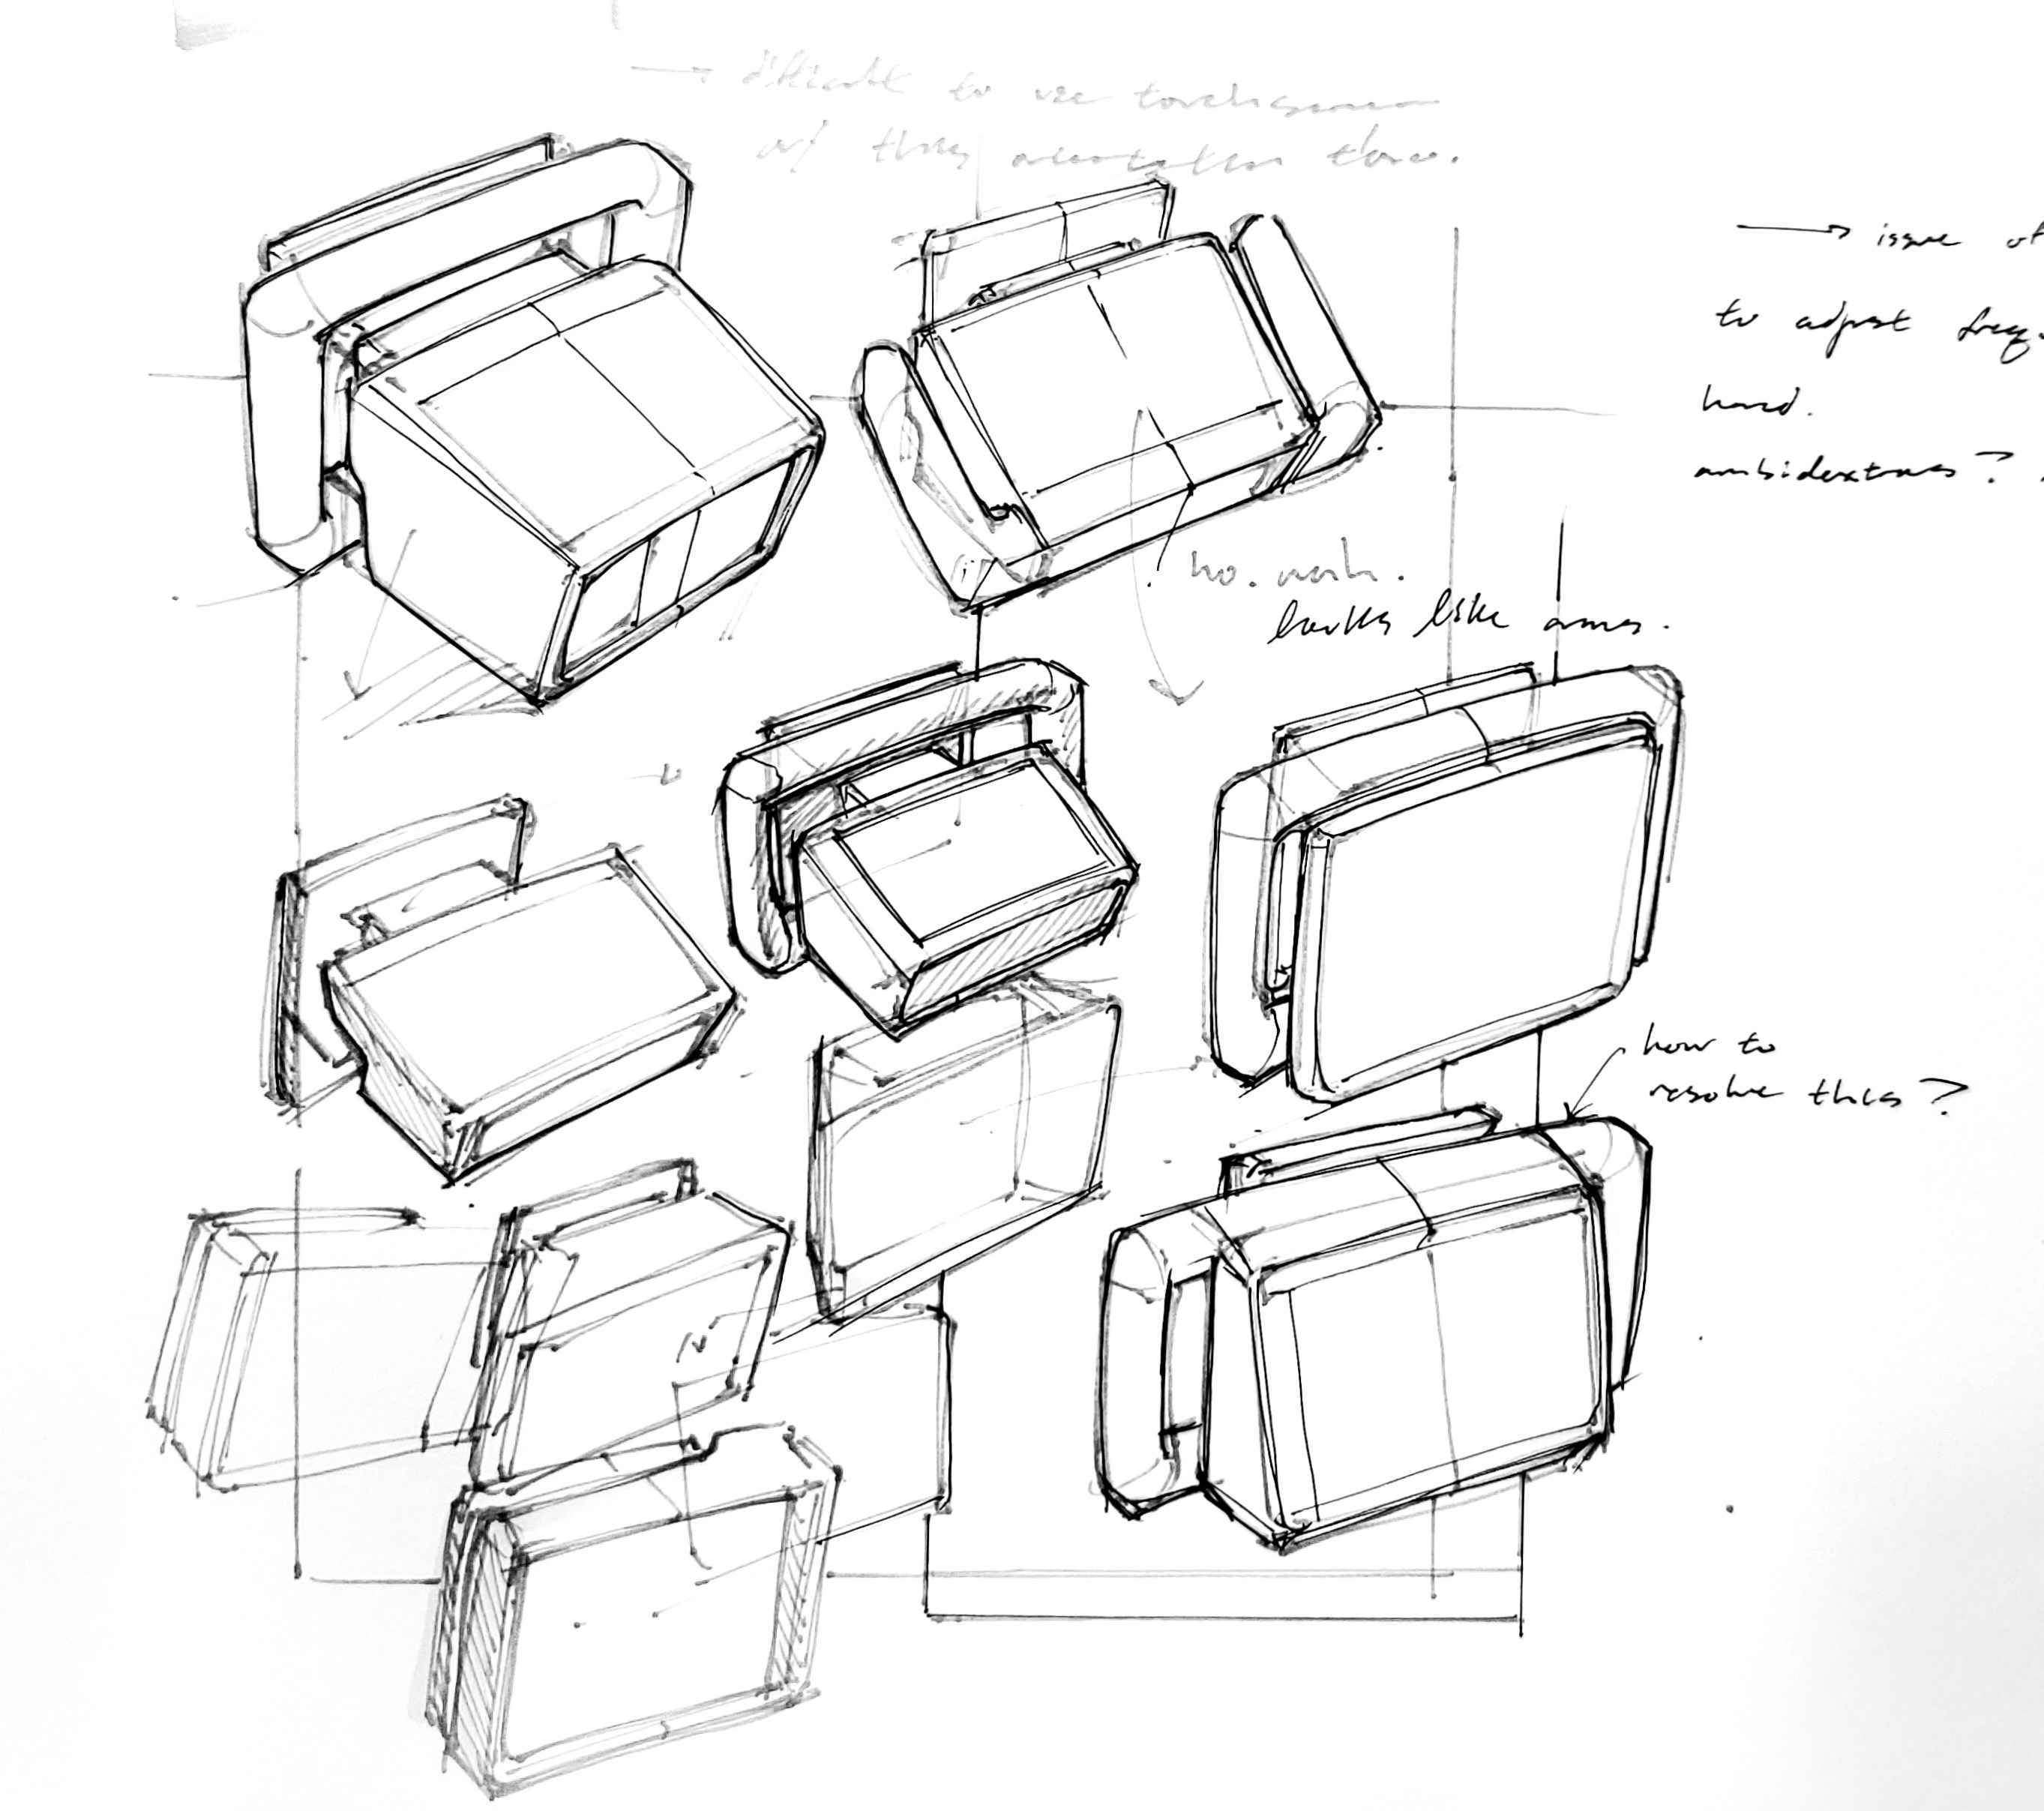 → difficult to use touchscreen
w/ this orientation tho.
→ issue of
to adjust freq.
hand.
ambidextrous?
no. meh.
looks like arms.
how to
resolve this?